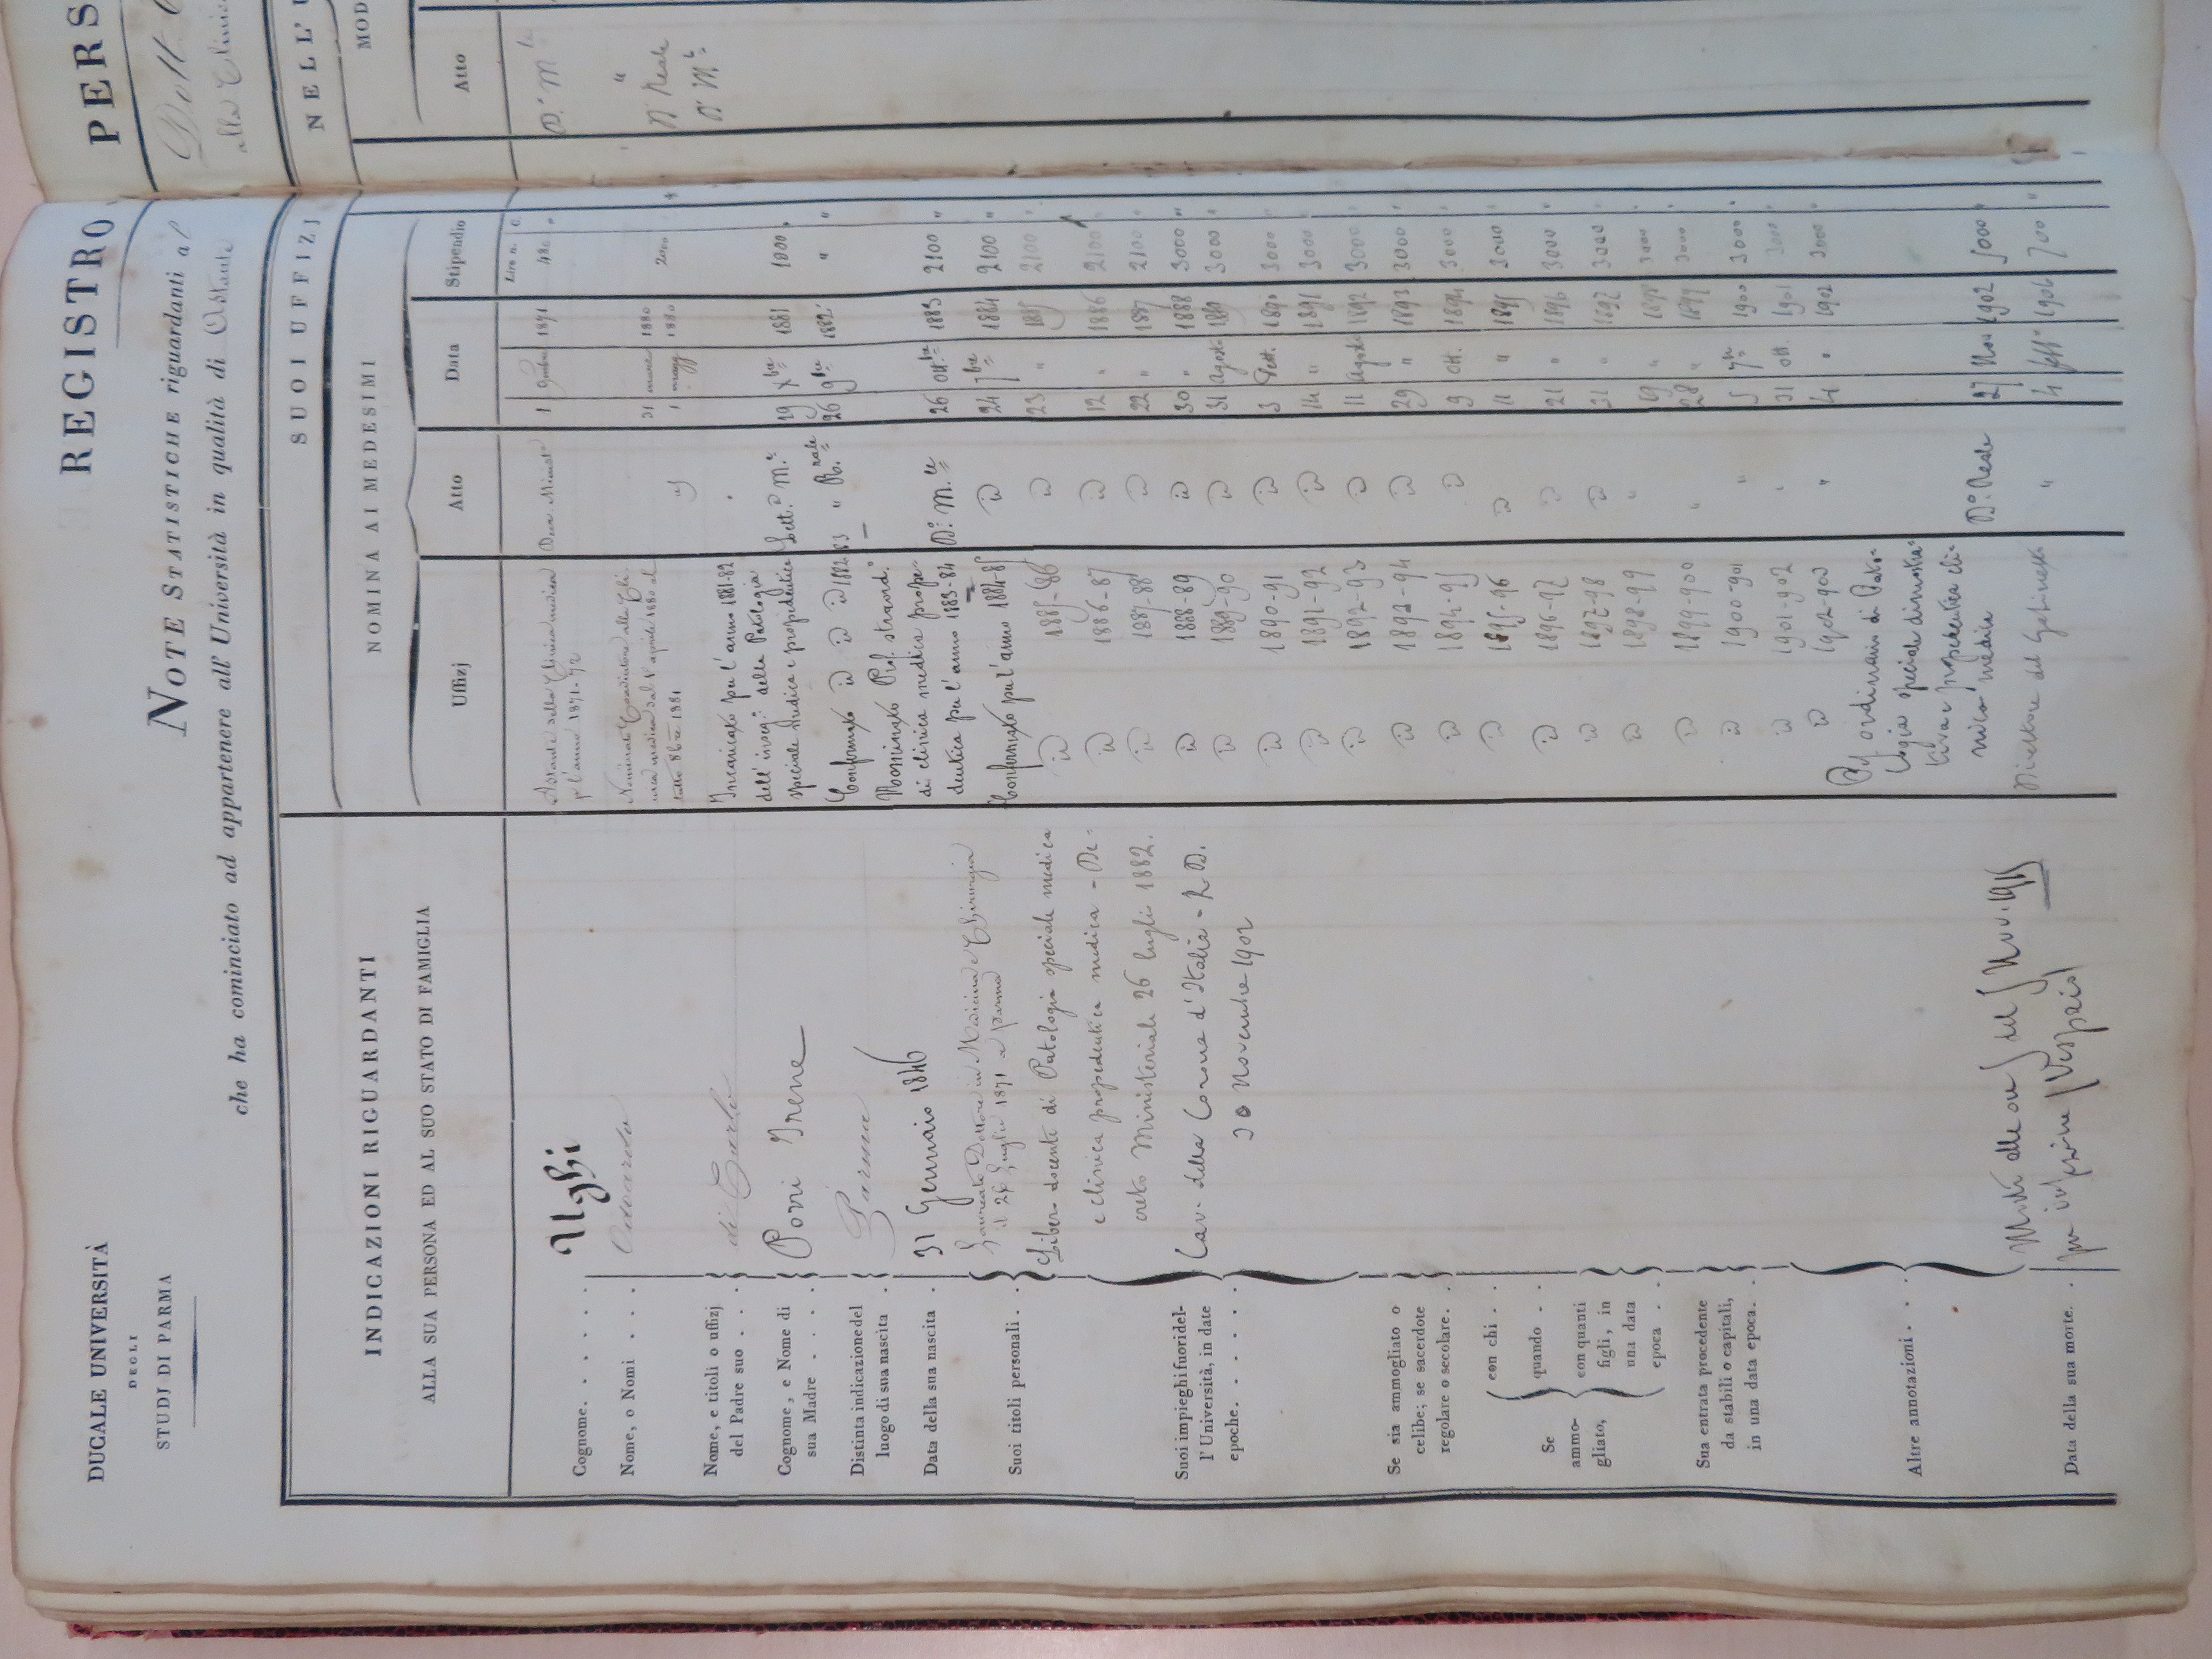 DUCALE UNIVERSITÀ
DEGLI
STUDI DI PARMA
REGISTRO PERS
NOTE STATISTICHE riguardanti al Dott.
che ha cominciato ad appartenere all' Università in qualità di alla Clinic
INDICAZIONI RIGUARDANTI
ALLA SUA PERSONA ED AL SUO STATO DI FAMIGLIA
Cognome. . . . . . Ughi
Nome, o Nomi . . . .
Nome, e titoli o uffizj
del Padre suo . . . di Carlo
Cognome, e Nome di
sua Madre . . . . Porri Irene
Distinta indicazione del
luogo di sua nascita . Parma
Data della sua nascita . 31 Gennaio 1846
Suoi titoli personali. . Laureato Dottore in Medicina e Chirurgia
il Luglio 1871 a Parma
Libero docente di Patologia speciale medica
e clinica propedeutica medica - De-
creto Ministeriale 26 luglio 1882.
Suoi impieghi fuori del-
l' Università, in date
epoche. . . . . . .
Cav. della Corona d'Italia - R. D.
30 Novembre 1902
Se sia ammogliato o
celibe; se sacerdote
regolare o secolare. .
Se
ammo-
gliato,
con chi . .
quando . .
con quanti
figli, in
una data
epoca . .
Sua entrata procedente
da stabili o capitali,
in una data epoca. .
Altre annotazioni . .
alle ore del Nov. 1915
per
Data della sua morte. .
SUOI UFFIZJ
NOMINA AI MEDESIMI
Uffizj Atto Data Stipendio
Lire n. C.
della Clinica medica
p l'anno 1871-72 1 1871 480 "
Nominato Coadiutore alla Cli-
nica medica dal 1° aprile 1880 al 31 marzo 1880
1881 id 1 magg 1880 2000
Incaricato per l'anno 1881-82
dell'inseg.° della Patologia
speciale medica e propedeutica Lett.a M.e 19 Xbre 1881 1000 "
Confermato id id id 1882-83 " R.nale 26 9bre 1882 " "
Nominato Prof. straord.°
di clinica medica prope-
deutica per l'anno 1883-84 D.° M.le 26 ottbre 1883 2100 "
Confermato per l'anno 1884-85 id 24 7bre 1884 2100 "
id 1885-86 id 23 " 1885 2100 "
id 1886-87 id 12 " 1886 2100 "
id 1887-88 id 22 " 1887 2100 "
id 1888-89 id 30 " 1888 3000 "
id 1889-90 id 31 Agosto 1889 3000 "
id 1890-91 id 3 Sett. 1890 3000 "
id 1891-92 id 14 " 1891 3000 "
id 1892-93 id 11 Agosto 1892 3000 "
id 1892-94 id 29 " 1893 3000 "
id 1894-95 id 9 ott. 1894 3000 "
id 1895-96 id 11 " 1895 3000 "
id 1896-97 id 21 " 1896 3000 "
id 1897-98 id 31 " 1897 3000 "
id 1898-99 " " 1898 3000 "
id 1899-900 " 28 " 1899 3000 "
id 1900-901 " 5 7bre 1900 3000 "
id 1901-902 " 31 ott. 1901 3000 "
id 1902-903 " 4 " 1902 3000 "
Prof ordinario di Pato-
logia speciale dimostra-
tiva e propedeutica cli-
nica medica D.° Reale 27 Nov 1902 5000 "
Direttore del Gabinetto " 4 1906 700 "
NELL'
MOD
Atto
D.° M.le
"
D° Reale
D° M.le